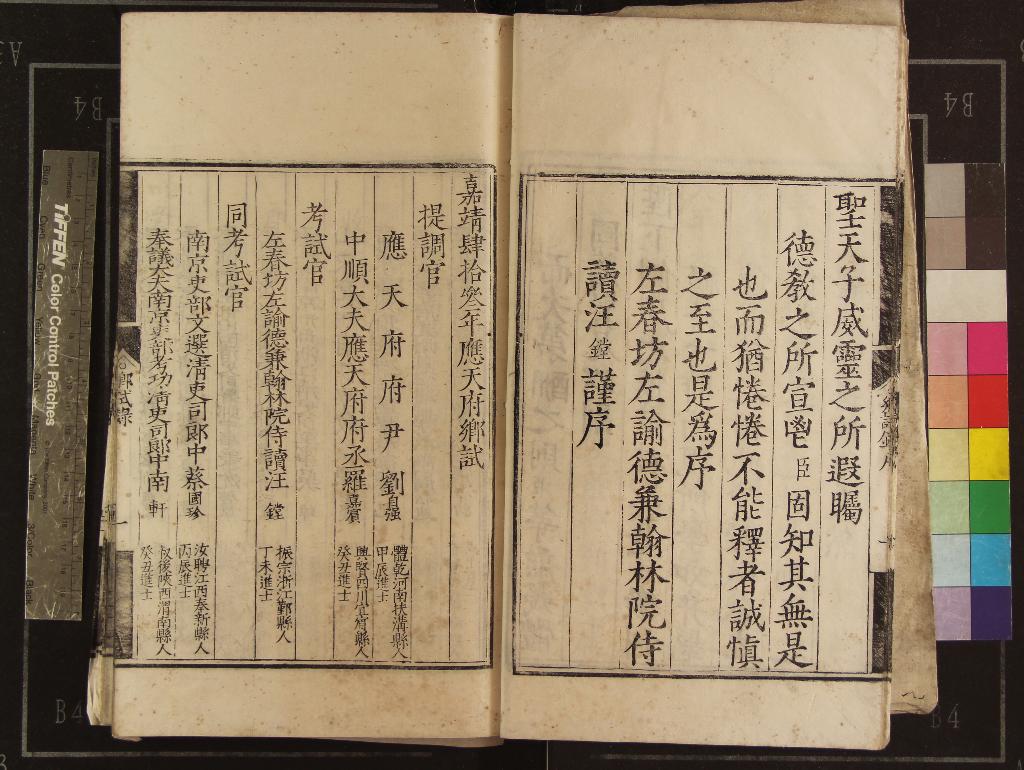 聖天子威靈之所遐矚
德敎之所宣鬯臣固知其無是
也而猶惓惓不能釋者誠愼
之至也是爲序
左春坊左諭德兼翰林院侍
讀汪鏜謹序
嘉靖肆拾叄年應天府鄉試
提調官
應天府府尹劉自强 體乾河南扶溝縣人甲辰進士
中順大夫應天府府丞羅嘉賓 興賢四川宜賓縣人癸丑進士
考試官
左春坊左諭德兼翰林院侍讀汪鏜 振宗浙江鄞縣人丁未進士
同考試官
南京吏部文選淸吏司郞中蔡國珍 汝聘江西奉新縣人丙辰進士
奉議大夫南京吏部考功淸吏司郞中南軒 叔後陝西渭南縣人癸丑進士
鄉試錄
TIFFEN Color Control Patches
B4
B4
B4
B4
A3